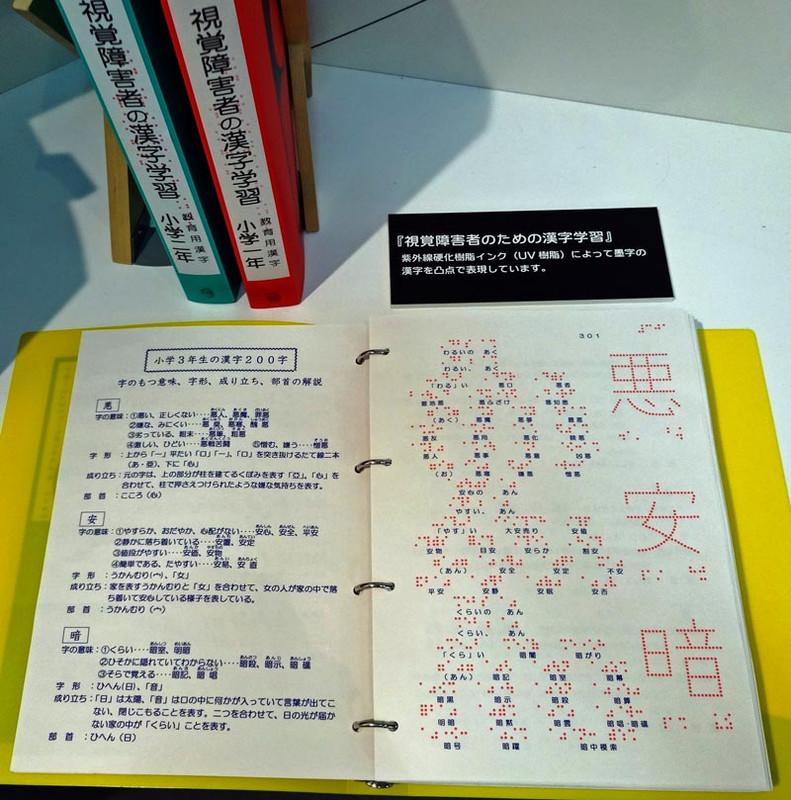 視覚障害者の漢字学習 教育用漢字 小学二年
視覚障害者の漢字学習 教育用漢字 小学一年
『視覚障害者のための漢字学習』
紫外線硬化樹脂インク（UV樹脂）によって墨字の
漢字を凸点で表現しています。
小学3年生の漢字200字
字のもつ意味、字形、成り立ち、部首の解説
悪
字の意味：①悪い、正しくない‥‥悪人、悪魔、罪悪
②嫌な、みにくい‥‥悪臭、悪寒、醜悪
③劣っている、粗末‥‥悪筆、粗悪
④激しい、ひどい‥‥悪戦苦闘 ⑤憎む、嫌う‥‥憎悪
字形：上から「一」平たい「口」「一」、「口」を突き抜けるたて線二本
（あ・亜）、下に「心」
成り立ち：元の字は、上の部分が柱を建てるくぼみを表す「亞」、「心」を
合わせて、柱で押さえつけられたような嫌な気持ちを表す。
部首：こころ（心）
安
字の意味：①やすらか、おだやか、心配がない‥‥安心、安全、平安
②静かに落ち着いている‥‥安置、安定
③値段がやすい‥‥安価、安物
④簡単である、たやすい‥‥安易、安直
字形：うかんむり(宀)、「女」
成り立ち：家を表すうかんむりと「女」を合わせて、女の人が家の中で落
ち着いて安心している様子を表している。
部首：うかんむり（宀）
暗
字の意味：①くらい‥‥暗室、明暗
②ひそかに隠れていてわからない‥‥暗殺、暗示、暗礁
③そらで覚える‥‥暗記、暗唱
字形：ひへん(日)、「音」
成り立ち：「日」は太陽、「音」は口の中に何かが入っていて言葉が出てこ
ない、閉じこもることを表す。二つを合わせて、日の光が届か
ない家の中が「くらい」ことを表す。
部首：ひへん（日）
301
悪
わるいの あく
わるい、あく
「わる」い 悪口 悪者
悪ふざけ 悪知恵
（あく）
悪友 悪用 悪化
悪人 悪意 凶悪
（お） 悪寒 嫌悪 憎悪
安
安心の あん
やすい、あん
「やす」い 大安売り 安値
安物 目安 安らか 割安
（あん） 安全 安定 不安
平安 安静 安眠 安否
暗
くらいの あん
くらい、あん
「くら」い 暗闇 暗がり
（あん） 暗記 暗室 暗幕
暗黒 暗示 暗殺 暗算
明暗 暗黙 暗雲 暗唱・暗礁
暗号 暗躍 暗中模索